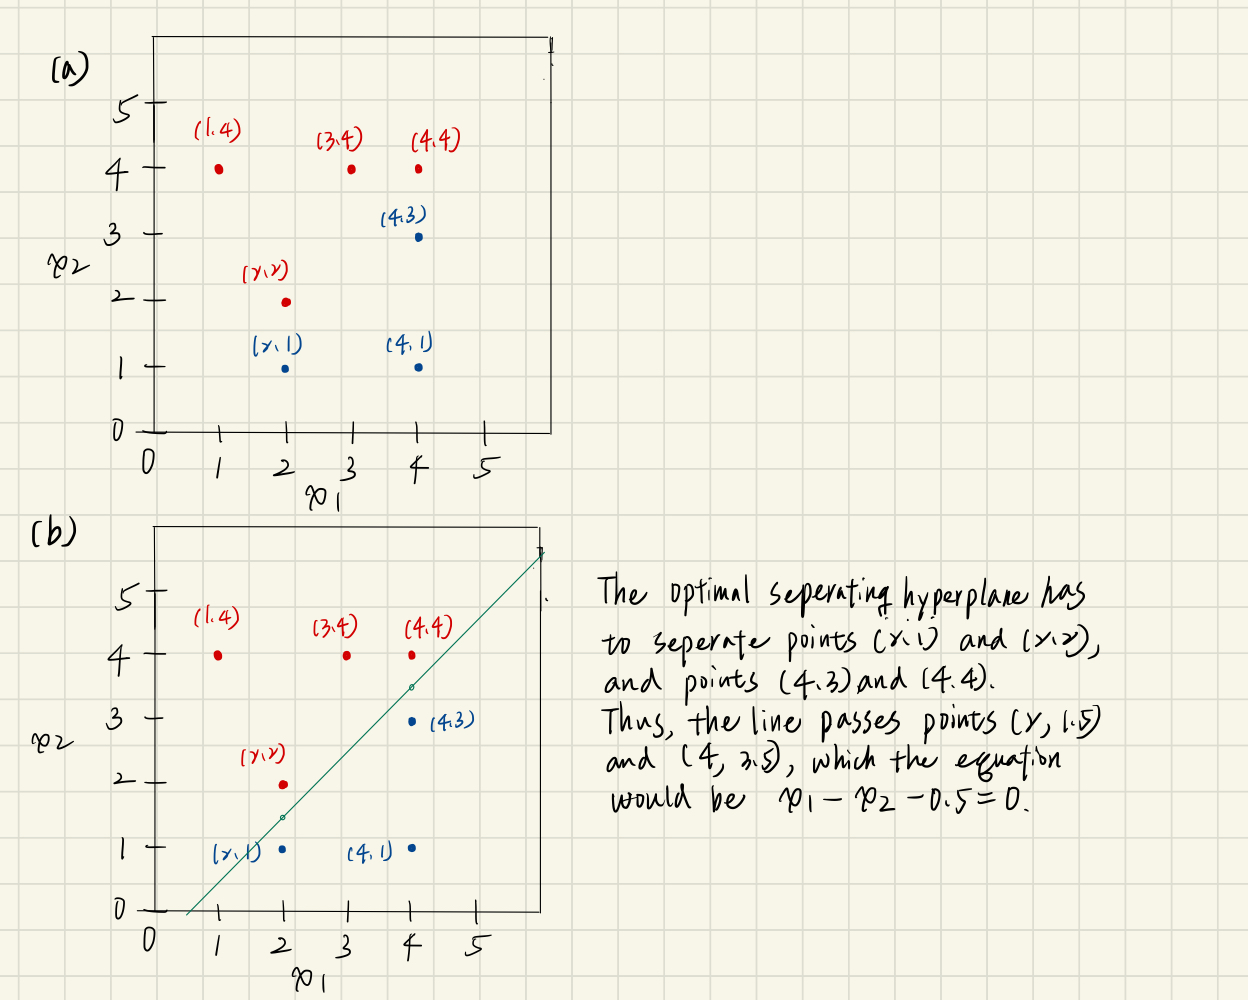 (a)
5
(1.4) (3.4) (4.4)
4
(4.3)
3
x2
(2.2)
2
(2.1) (4.1)
1
0
0 1 2 3 4 5
x1
(b)
5
(1.4) (3.4) (4.4)
4
3 (4.3)
x2
(2.2)
2
1 (2.1) (4.1)
0
0 1 2 3 4 5
x1
The optimal seperating hyperplane has
to seperate points (2.1) and (2.2),
and points (4.3) and (4.4).
Thus, the line passes points (2, 1.5)
and (4, 3.5), which the equation
would be x1 - x2 - 0.5 = 0.